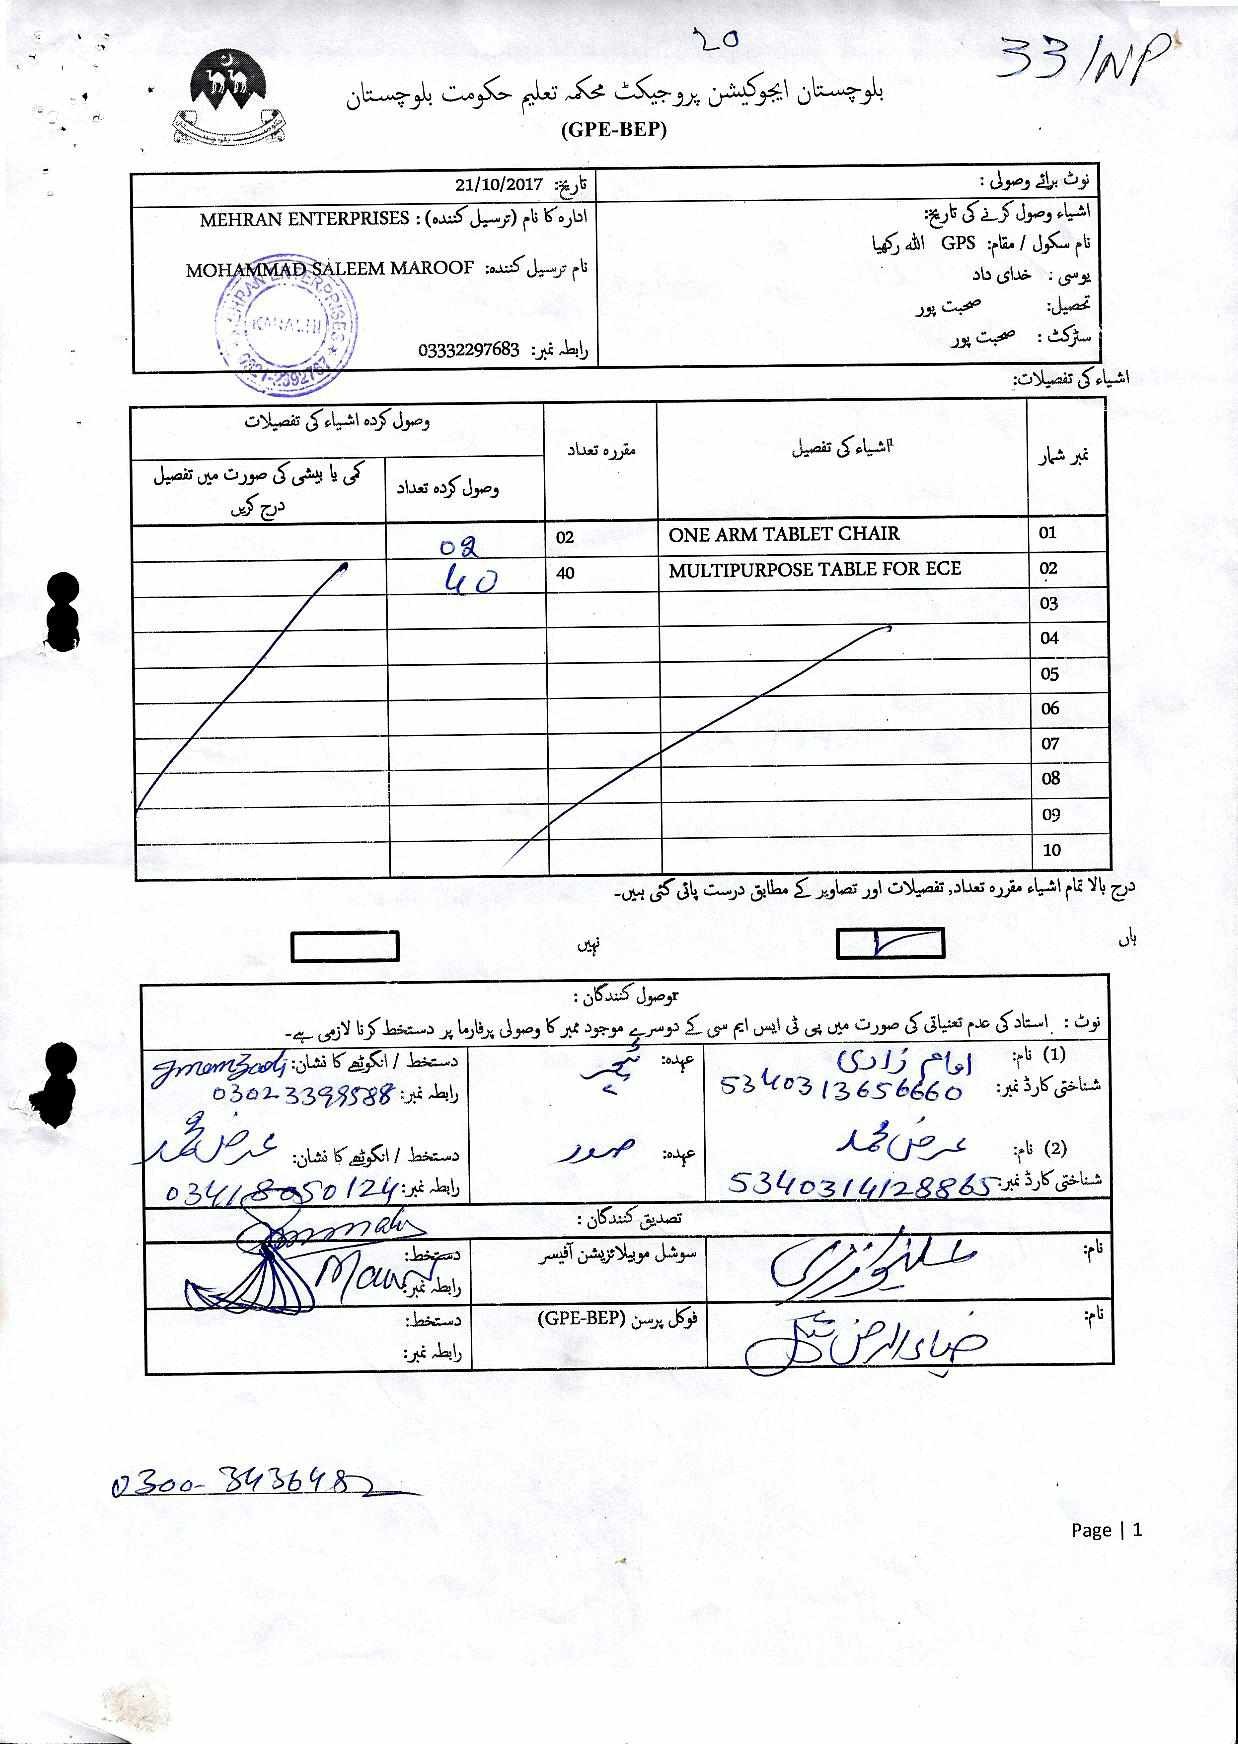 20
33/NP
بلوچستان ایجوکیشن پروجیکٹ محکمہ تعلیم حکومت بلوچستان
(GPE-BEP)
نوٹ برائے وصولی :
تاریخ: 21/10/2017
اشیاء وصول کرنے کی تاریخ:
نام سکول / مقام: GPS اللہ رکھیا
یو سی : خدای داد
تحصیل: صحبت پور
سٹرکٹ : صحبت پور
ادارہ کا نام (ترسیل کنندہ) : MEHRAN ENTERPRISES
نام ترسیل کنندہ: MOHAMMAD SALEEM MAROOF
رابطہ نمبر: 03332297683
MEHRAN ENTERPRISES
KARACHI
0321-2392767
اشیاء کی تفصیلات:
نمبر شمار اشیاء کی تفصیل مقررہ تعداد وصول کردہ اشیاء کی تفصیلات
وصول کردہ تعداد کمی یا بیشی کی صورت میں تفصیل درج کریں
01 ONE ARM TABLET CHAIR 02 02
02 MULTIPURPOSE TABLE FOR ECE 40 40
03
04
05
06
07
08
09
10
درج بالا تمام اشیاء مقررہ تعداد, تفصیلات اور تصاویر کے مطابق درست پائی گئی ہیں۔
ہاں نہیں
وصول کنندگان :
نوٹ : استاد کی عدم تعنیاتی کی صورت میں پی ٹی ایس ایم سی کے دوسرے موجود ممبر کا وصولی پرفارما پر دستخط کرنا لازمی ہے۔
(1) نام: امام زادی عہدہ: ٹیچر دستخط / انگوٹھے کا نشان: Imamzadi
شناختی کارڈ نمبر: 5340313656660 رابطہ نمبر: 03023399588
(2) نام: عرض محمد عہدہ: صدر دستخط / انگوٹھے کا نشان: عرض محمد
شناختی کارڈ نمبر: 5340314128865 رابطہ نمبر: 03418050124
تصدیق کنندگان :
نام: سوشل موبیلائزیشن آفیسر دستخط:
رابطہ نمبر:
نام: فوکل پرسن (GPE-BEP) دستخط:
رابطہ نمبر:
0300-3436482
Page | 1